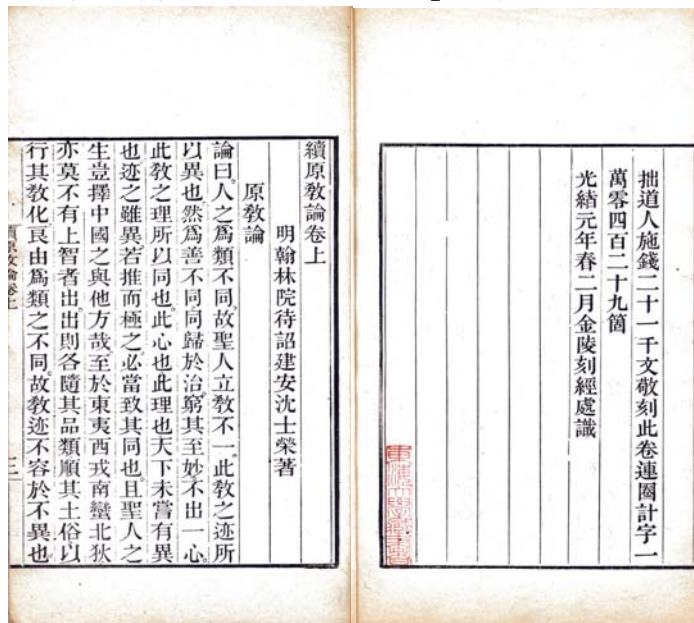 拙道人施錢二十一千文敬刻此卷連圈計字一
萬零四百二十九箇
光緒元年春二月金陵刻經處識
東海大學藏書
續原教論卷上
明翰林院待詔建安沈士榮著
原教論
論曰。人之爲類不同。故聖人立教不一。此教之迹所
以異也。然爲善不同。同歸於治。窮其至妙。不出一心。
此教之理所以同也。此心也。此理也。天下未嘗有異
也。迹之雖異。若推而極之。必當致其同也。且聖人之
生。豈擇中國之與他方哉。至於東夷西戎南蠻北狄。
亦莫不有上智者出。出則各隨其品類。順其土俗。以
行其教化。良由爲類之不同。故教迹不容於不異也。
續原教論卷上